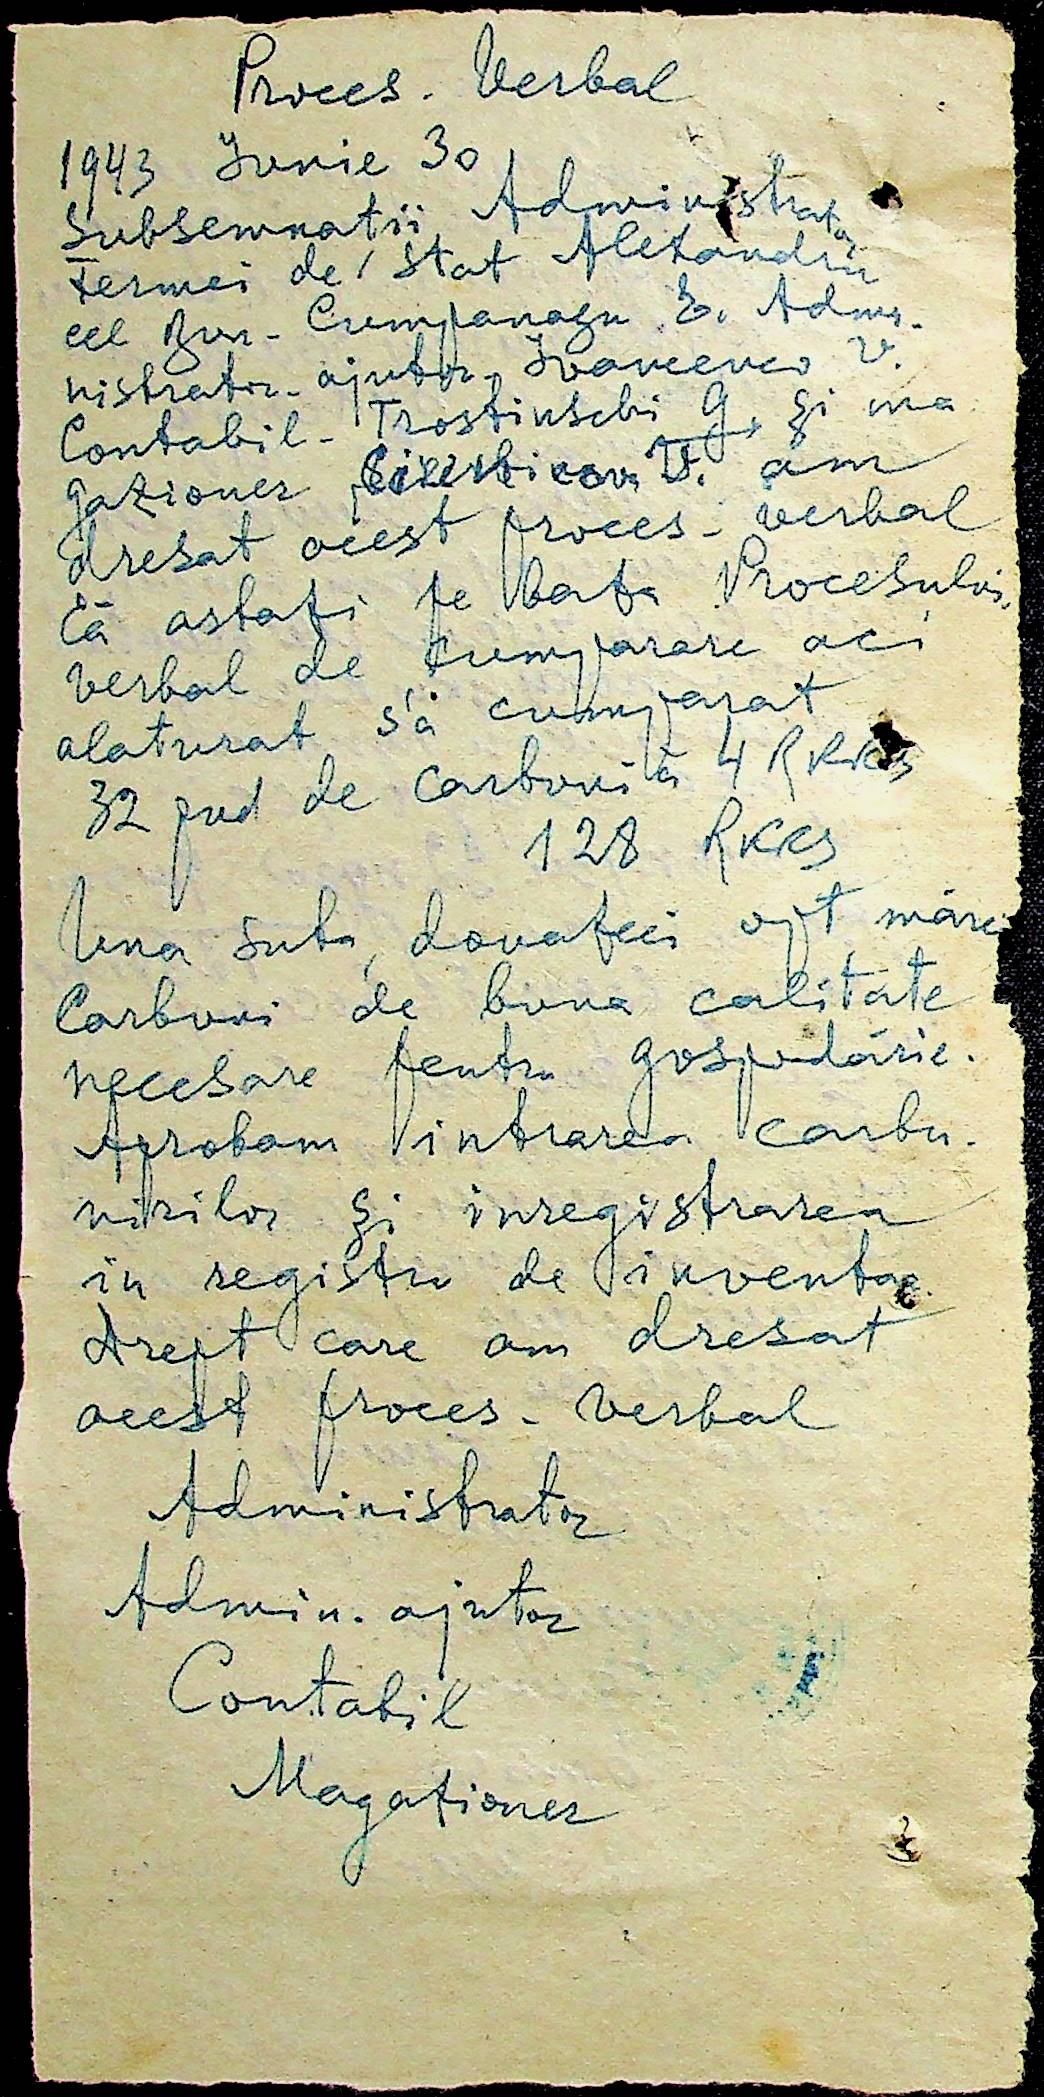 Proces-Verbal
1943 Iunie 30
Subsemnatii Administrator
Fermei de Stat Alexandru
cel Bun - Cumpanagu E. Admi-
nistrator-ajutor, Ivancenco V.
Contabil - Trostinschi G. și ma
gazioner V. am
dresat acest proces-verbal
că astați pe baza Procesului
verbal de cumparare aci
alaturat s'a cumparat
32 pud de carbuni à 4 RKKS
128 RKKS
Una suta douazeci opt mărci
Carbuni de buna calitate
necesare pentru gospodărie.
Aprobam intrarea carbu-
nirilor și inregistrarea
in registru de inventar
drept care am dresat
acest proces-verbal
Administrator
Admin. ajutor
Contabil
Magationer